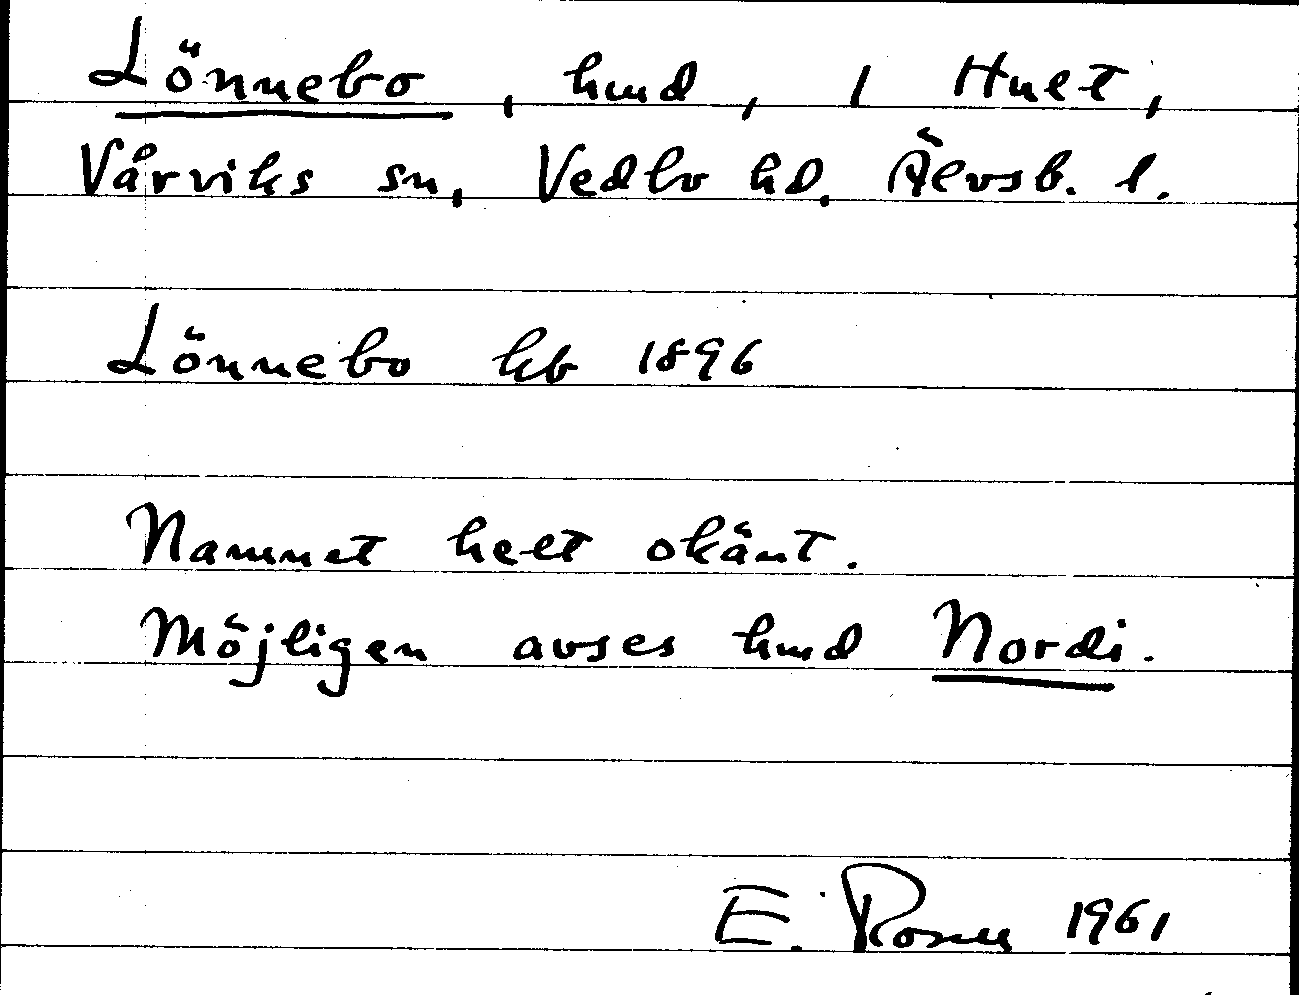 Lönnebo, hmd, 1 Hult,
Vårviks sn, Vedbo hd, Älvsb. l.
Lönnebo kb 1896
Namnet helt okänt.
Möjligen avses hmd Nordi.
E. 1961